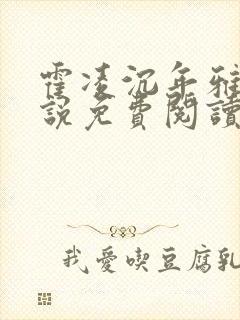 霍凌沉年雅
說免費閱讀
我愛喫豆腐乳